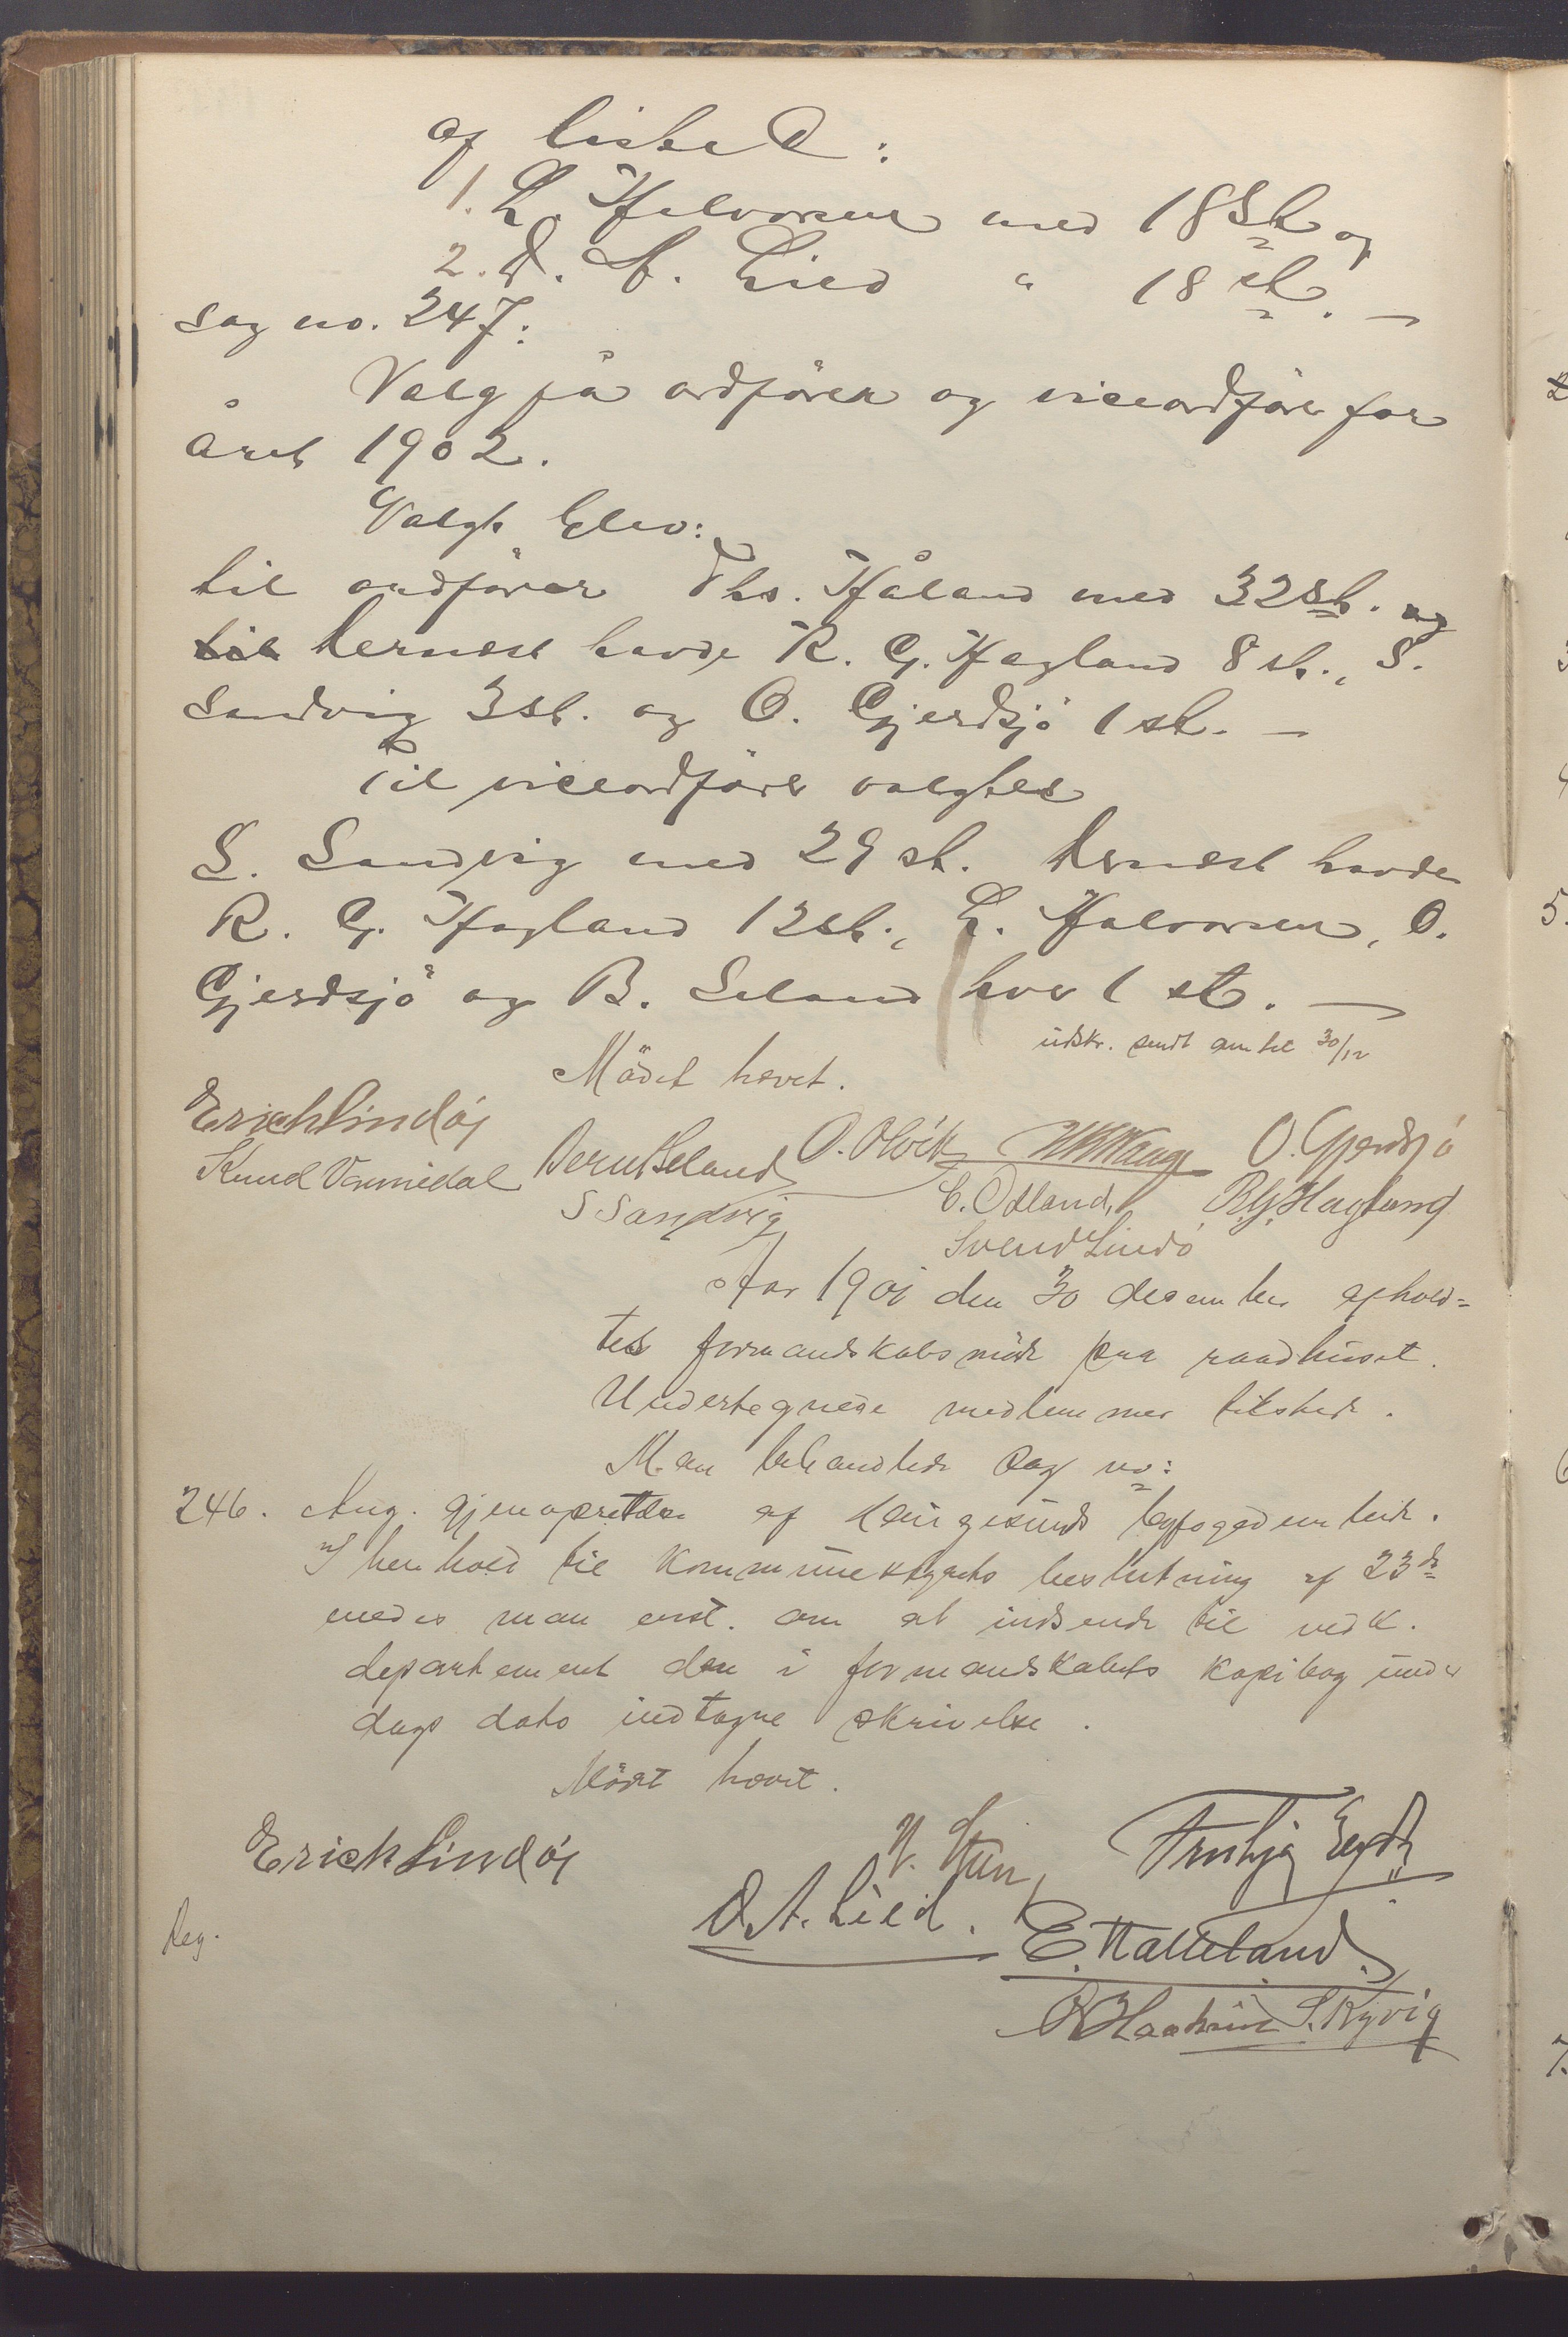 af liste D:
1. L. Halvorsen med 18 st. og
2. D. A. Lied " 18 st. —
Sag no. 247:
Valg på ordförer og viceordförer for
året 1902.
Valgt blev:
til ordförer Ths. Håland med 32 st. og
til Dernæst havde R. G. Hagland 8 st., S.
Sandvig 3 st. og O. Gjerdsjö 1 st. —
Til viceordförer valgtes
S. Sandvig med 29 st. Dernæst havde
R. G. Hagland 12 st., L. Halvorsen, O.
Gjerdsjö og B. Seland hver 1 st. —
udskr. sendt amtet 30/12
Mödet hævet.
Erich Lindöj O. Olvik O. Gjerdsjö
Knud Bernt Seland
S Sandvig E. Odland, R. G. Hagland
Svend Lindö
Aar 1901 den 30 desember afhold=
tes formandskabsmöde paa raadhuset.
Undertegnede medlemmer tilstede.
Man behandlede Sag no:
246. Ang. gjenoprettelse af Haugesunds byfogedembede.
I henhold til kommunestyrets beslutning af 23de
enedes man enst. om at indsende til vedk.
departement den i formandskabets kopibog under
dags dato indtagne skrivelse.
Mödet hævet.
Erich Lindöj
D. A. Lied.
Reg.
E. Halleland.
S. Kyvig